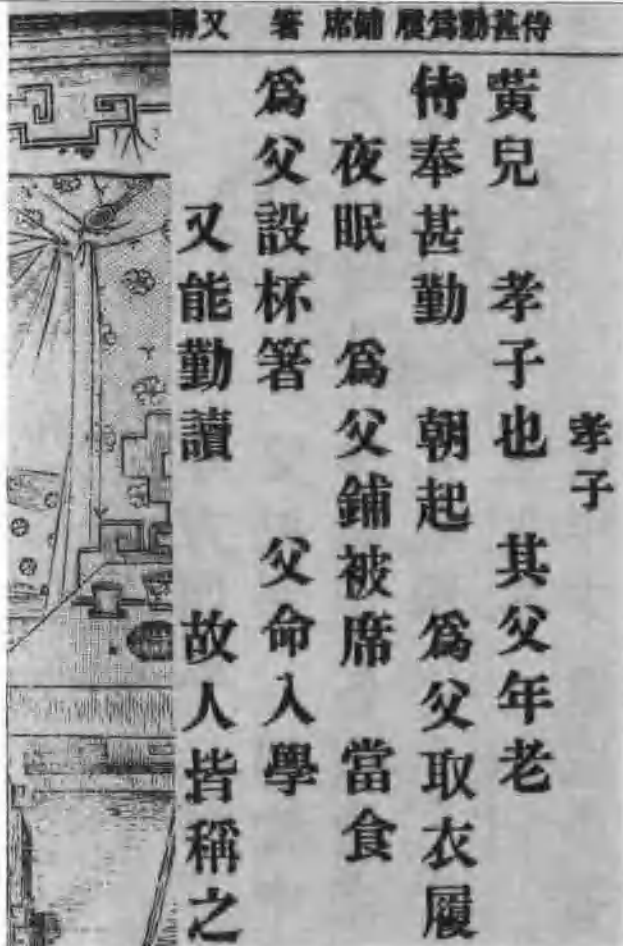 侍甚勤爲履 鋪席 箸 又
孝子
黃兒 孝子也 其父年老
侍奉甚勤 朝起 爲父取衣履
夜眠 爲父鋪被席 當食
爲父設杯箸 父命入學
又能勤讀 故人皆稱之